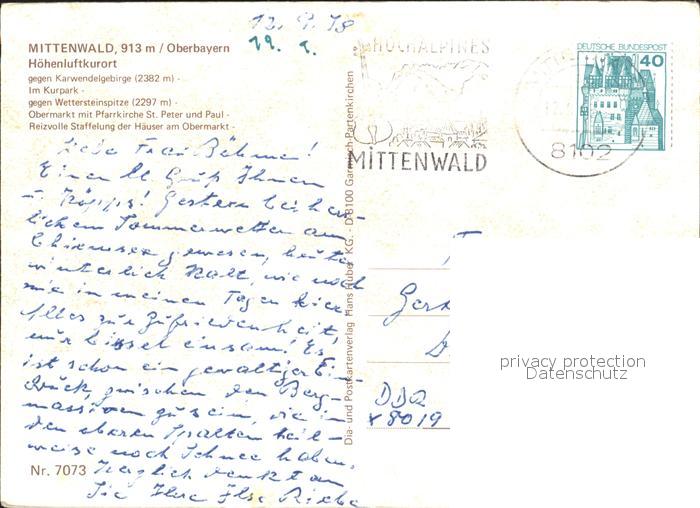 12.9.78
19.
MITTENWALD, 913 m / Oberbayern
Höhenluftkurort
gegen Karwendelgebirge (2382 m) -
Im Kurpark -
gegen Wettersteinspitze (2297 m) -
Obermarkt mit Pfarrkirche St. Peter und Paul -
Reizvolle Staffelung der Häuser am Obermarkt -
Liebe Frau Böhme!
Einen lb. Gruß Ihnen
Gestern bei herr-
lichem Sommerwetter am
Chiemsee gewesen, heute
winterlich kalt, wie noch
nie in meinen Tagen hier
Alles zur Zufriedenheit,
nur bissel einsam. Es
ist schon ein gewaltiger Ein-
druck, zwischen den Berg-
massiven zu sein, die in
den oberen Spalten teil-
weise noch Schnee haben.
Herzlich denkt an
Sie Ihre Ilse
Nr. 7073
Dia- und Postkartenverlag Hans Huber KG. - D-8100 Garmisch-Partenkirchen
HOCHALPINES
MITTENWALD
DEUTSCHE BUNDESPOST
40
8102
DDR
x 8019
privacy protection
Datenschutz